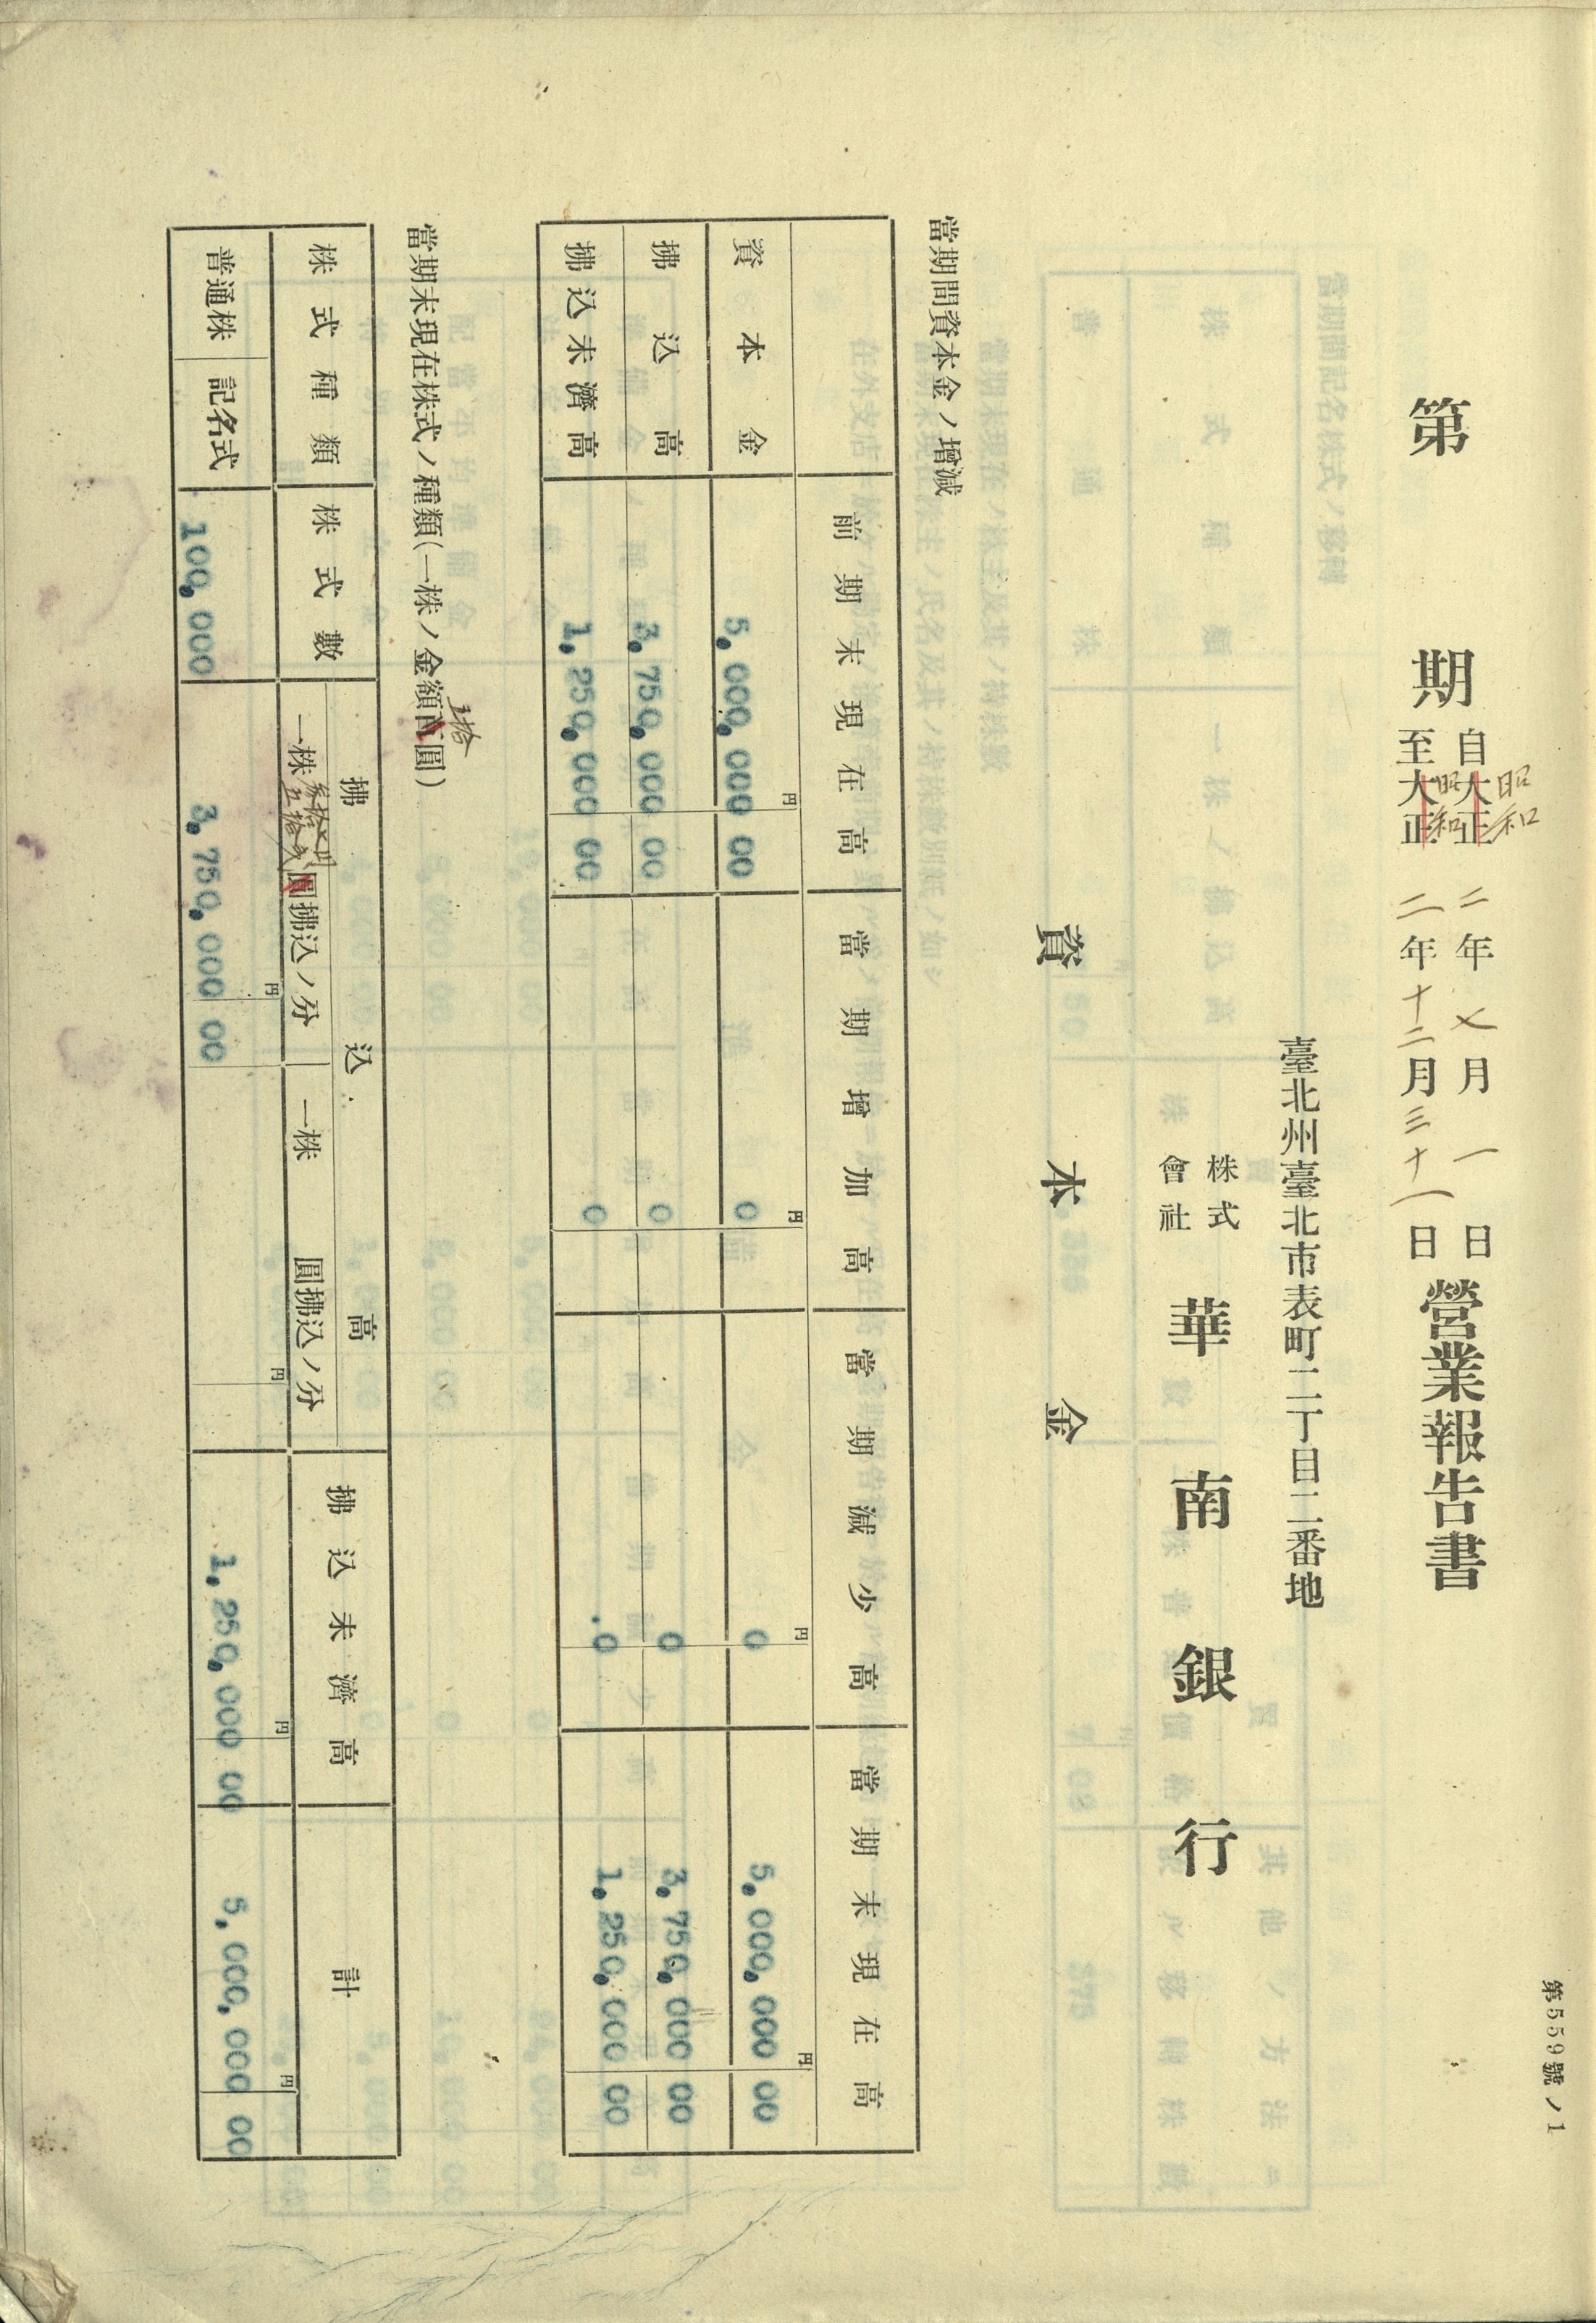 第559號ノ1
第 期 自大正昭和二年七月一日 至大正昭和二年十二月三十一日 營業報告書
臺北州臺北市表町二丁目二番地
株式會社 華南銀行
資本金
當期間資本金ノ增減
前期末現在高 當期增加高 當期減少高 當期末現在高
資本金 円 5,000,000 00 円 0 円 0 円 5,000,000 00
拂込高 3,750,000 00 0 0 3,750,000 00
拂込未濟高 1,250,000 00 0 0 1,250,000 00
當期末現在株式ノ種類(一株ノ金額五拾圓)
株式種類 株式數 拂込高 拂込未濟高 計
一株 圓拂込ノ分 一株 圓拂込ノ分
普通株 記名式 100,000 円 3,750,000 00 円 円 1,250,000 00 円 5,000,000 00